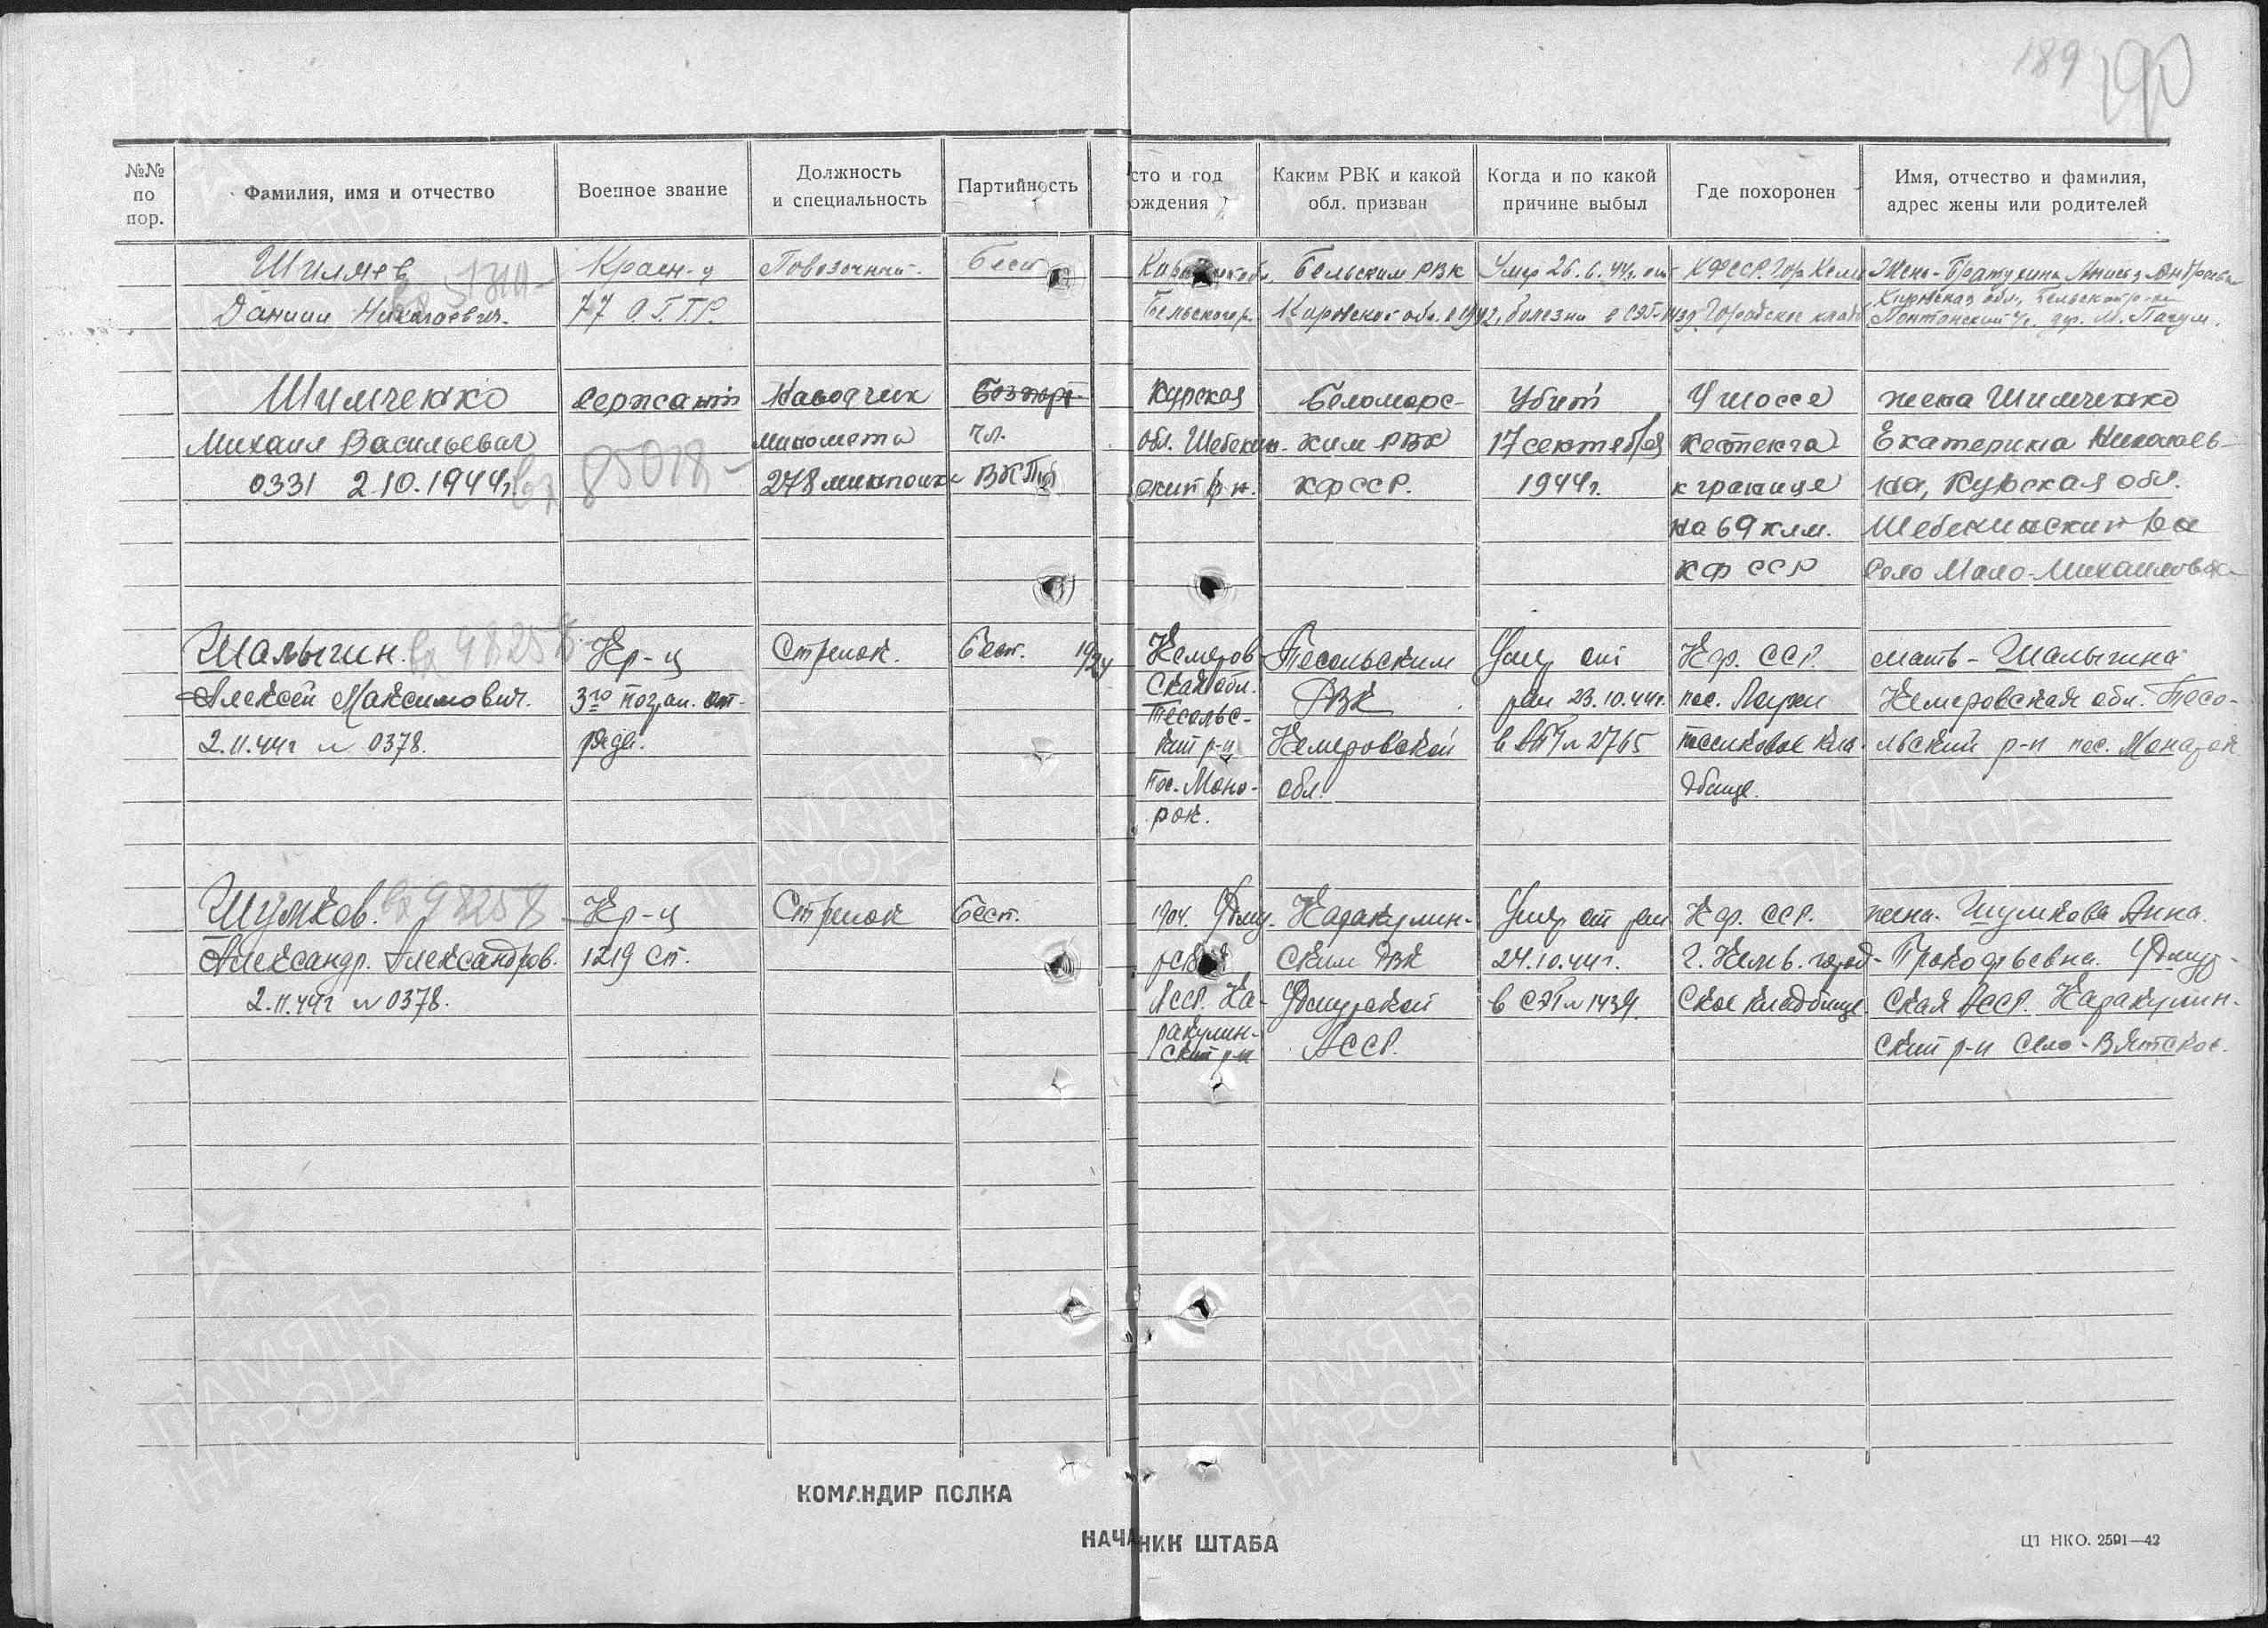 189 190
№№ по пор.
Фамилия, имя и отчество
Военное звание
Должность и специальность
Партийность
сто и год ождения
Каким РВК и какой обл. призван
Когда и по какой причине выбыл
Где похоронен
Имя, отчество и фамилия, адрес жены или родителей
Шиляев
Даниил Николаевич.
Красн-ц
77 О.Г.Т.Р.
Повозочный.
Бесп
Бельского р.
Бельским РВК
Кировской обл. в 1942
Умер 26.6.44г. от
болезни в СЭГ-1439
КФССР. Гор. Кемь
Городское клад
Жена - Братухина Анисья Андреевна
Кировская обл., Бельский р-он
дер. М. Пагум.
Шимченко
Михаил Васильевич
0331 2.10.1944г вх 85018
сержант
Наводчик
миномета
278 минполк
Безпарт.
чл.
ВКПб
Курская
обл. Шебекин-
ский р-н.
Беломорс-
ким РВК
КФССР.
Убит
17 сентября
1944г.
У шоссе
Кестенга
к границе
на 69 клм.
КФ ССР
жена Шимченко
Екатерина Николаев-
на, Курская обл.
Шебекинский р-н
село Мало-Михайловка
Шалыгин. вх 98258
Алексей Максимович.
2.11.44г № 0378.
Кр-ц
3го погран. от-
ряда.
Стрелок.
Бесп.
1924
Кемеров-
ская обл.
Тесольс-
кий р-н
Пос. Моно-
рок.
Тесольским
РВК
Кемеровской
обл.
Умер от
ран 23.10.44г.
в ЭГ № 2765
Кф. ССР.
пос. Лоухи
поселковое кла-
дбище.
мать - Шалыгина
Кемеровская обл. Тесо-
льский р-н пос. Монарок
Шумков. вх 98258
Александр. Александров.
2.11.44г № 0378.
Кр-ц
1219 сп.
Стрелок
Бесп.
1904. Удму-
АССР. Ка-
ракулин-
ский р-н
Каракулин-
ским РВК
Удмурской
АССР.
Умер от ран
24.10.44г.
в СЭГ № 1439.
Кф. ССР.
г. Кемь. город-
ское кладбище
жена. Шумкова Анна.
Прокофьевна. Удмур-
ская АССР. Каракулин-
ский р-н село - Вятское.
КОМАНДИР ПОЛКА
НАЧА НИК ШТАБА
ЦТ НКО. 2591—42
ПАМЯТЬ НАРОДА